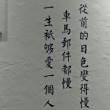 從前的日色變得慢
車馬郵件都慢
一生祇夠愛一個人